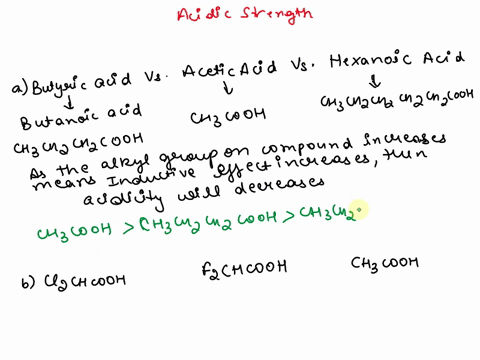 Acidic Strength
a) Butyric acid Vs. Acetic Acid Vs. Hexanoic Acid
↓ ↓ ↓
Butanoic acid CH3COOH CH3CH2CH2CH2CH2COOH
CH3CH2CH2COOH
As the alkyl group on compound increases
means Inductive effect increases, then
acidity will decreases
CH3COOH > CH3CH2CH2COOH > CH3CH2
b) Cl2CHCOOH F2CHCOOH CH3COOH